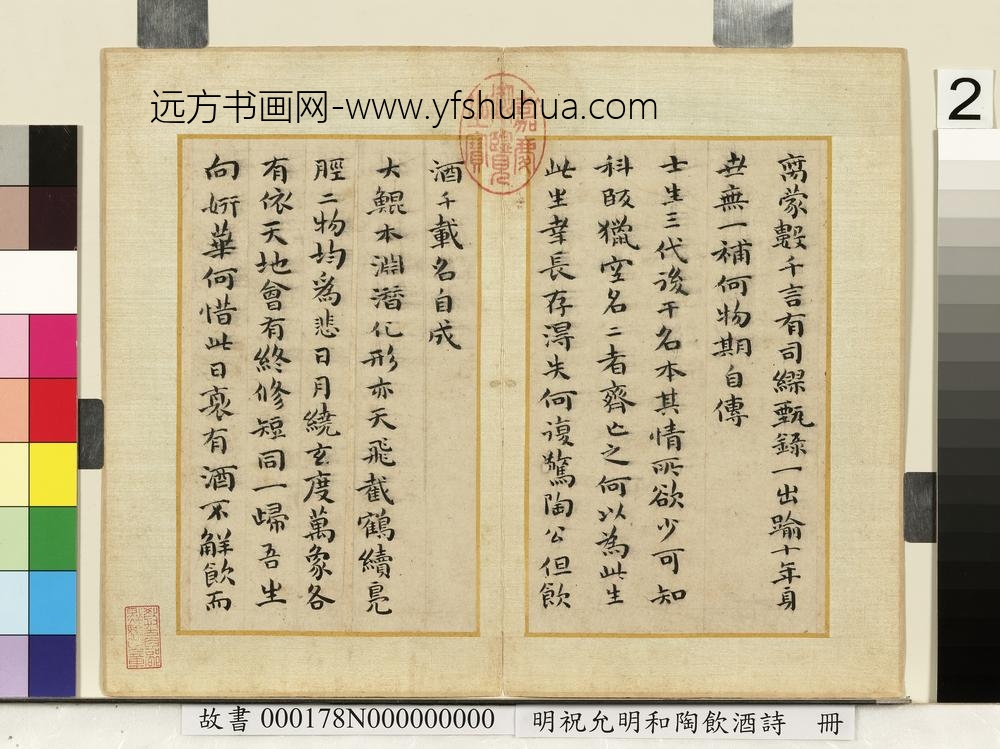 远方书画网-www.yfshuhua.com
2
离蒙彀千言有司繆甄錄一出踰十年身
世無一補何物期自傳
士生三代後干名本其情所欲少可知
科陂獵空名二者齊亡之何以為此生
此生幸長存得失何復驚陶公但飲
酒千載名自成
大鯤本淵潛化形亦天飛截鶴續鳧
脛二物均爲悲日月繞玄度萬象各
有依天地會有終修短同一歸吾生
向妍華何惜此日衰有酒不解飲而
嘉慶御覽之寶
故書 000178N000000000
明祝允明和陶飲酒詩 冊